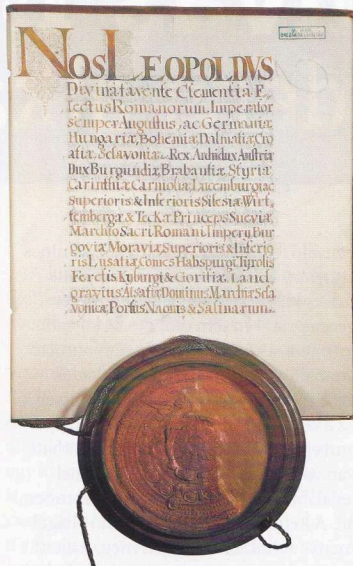 NOS LEOPOLDVS
Divina favente Clementia E,
lectus Romanorum Imperator
semper Augustus, ac Germaniæ
Hungariæ, Bohemiæ, Dalmatiæ, Cro
atiæ, Sclavoniæ Rex, Archidux Austriæ
Dux Burgundiæ, Brabantiæ, Styriæ
Carinthiæ, Carnioliæ, Lucemburgiæ
Superioris & Inferioris Silesiæ Wirt,
tembergæ & Teckæ, Princeps Sueviæ,
Marchio Sacri Romani Imperij Bur
goviæ Moraviæ, Superioris & Inferio
ris Lusatiæ, Comes Habspurgi, Tyrolis
Feretis Kyburgi & Goritiæ, Land
gravius Alsatiæ, Dominus Marchiæ Scla
vonicæ, Portus Naonis & Salinarum.